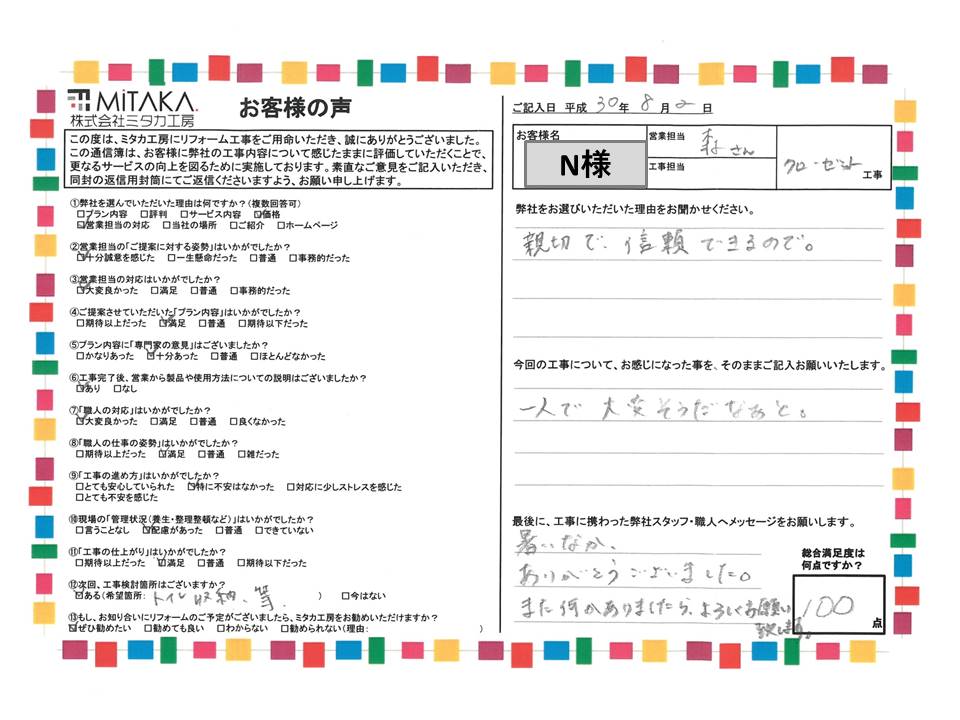 MiTAKA.
株式会社ミタカ工房
お客様の声
この度は、ミタカ工房にリフォーム工事をご用命いただき、誠にありがとうございました。
この通信簿は、お客様に弊社の工事内容について感じたままに評価していただくことで、
更なるサービスの向上を図るために実施しております。素直なご意見をご記入いただき、
同封の返信用封筒にてご返信くださいますよう、お願い申し上げます。
①弊社を選んでいただいた理由は何ですか?(複数回答可)
□プラン内容 □評判 □サービス内容 ☑価格
☑営業担当の対応 □当社の場所 □ご紹介 □ホームページ
②営業担当の「ご提案に対する姿勢」はいかがでしたか?
☑十分誠意を感じた □一生懸命だった □普通 □事務的だった
③営業担当の対応はいかがでしたか?
☑大変良かった □満足 □普通 □事務的だった
④ご提案させていただいた「プラン内容」はいかがでしたか?
□期待以上だった ☑満足 □普通 □期待以下だった
⑤プラン内容に「専門家の意見」はございましたか?
□かなりあった ☑十分あった □普通 □ほとんどなかった
⑥工事完了後、営業から製品や使用方法についての説明はございましたか?
☑あり □なし
⑦「職人の対応」はいかがでしたか?
☑大変良かった □満足 □普通 □良くなかった
⑧「職人の仕事の姿勢」はいかがでしたか?
□期待以上だった ☑満足 □普通 □雑だった
⑨「工事の進め方」はいかがでしたか?
□とても安心していられた ☑特に不安はなかった □対応に少しストレスを感じた
□とても不安を感じた
⑩現場の「管理状況(養生・整理整頓など)」はいかがでしたか?
□言うことなし ☑配慮があった □普通 □できていない
⑪「工事の仕上がり」はいかがでしたか?
□期待以上だった ☑満足 □普通 □期待以下だった
⑫次回、工事検討箇所はございますか?
☑ある(希望箇所: トイレ収納、等. ) □今はない
⑬もし、お知り合いにリフォームのご予定がございましたら、ミタカ工房をお勧めいただけますか?
☑ぜひ勧めたい □勧めても良い □わからない □勧められない(理由: )
ご記入日 平成 30年 8月 2日
お客様名
N様
営業担当 森さん
工事担当
クローゼット工事
弊社をお選びいただいた理由をお聞かせください。
親切で、信頼できるので。
今回の工事について、お感じになった事を、そのままご記入お願いいたします。
一人で大変そうだなぁと。
最後に、工事に携わった弊社スタッフ・職人へメッセージをお願いします。
暑いなか、
ありがとうございました。
また何かありましたら、よろしくお願い
致します。
総合満足度は
何点ですか?
100点